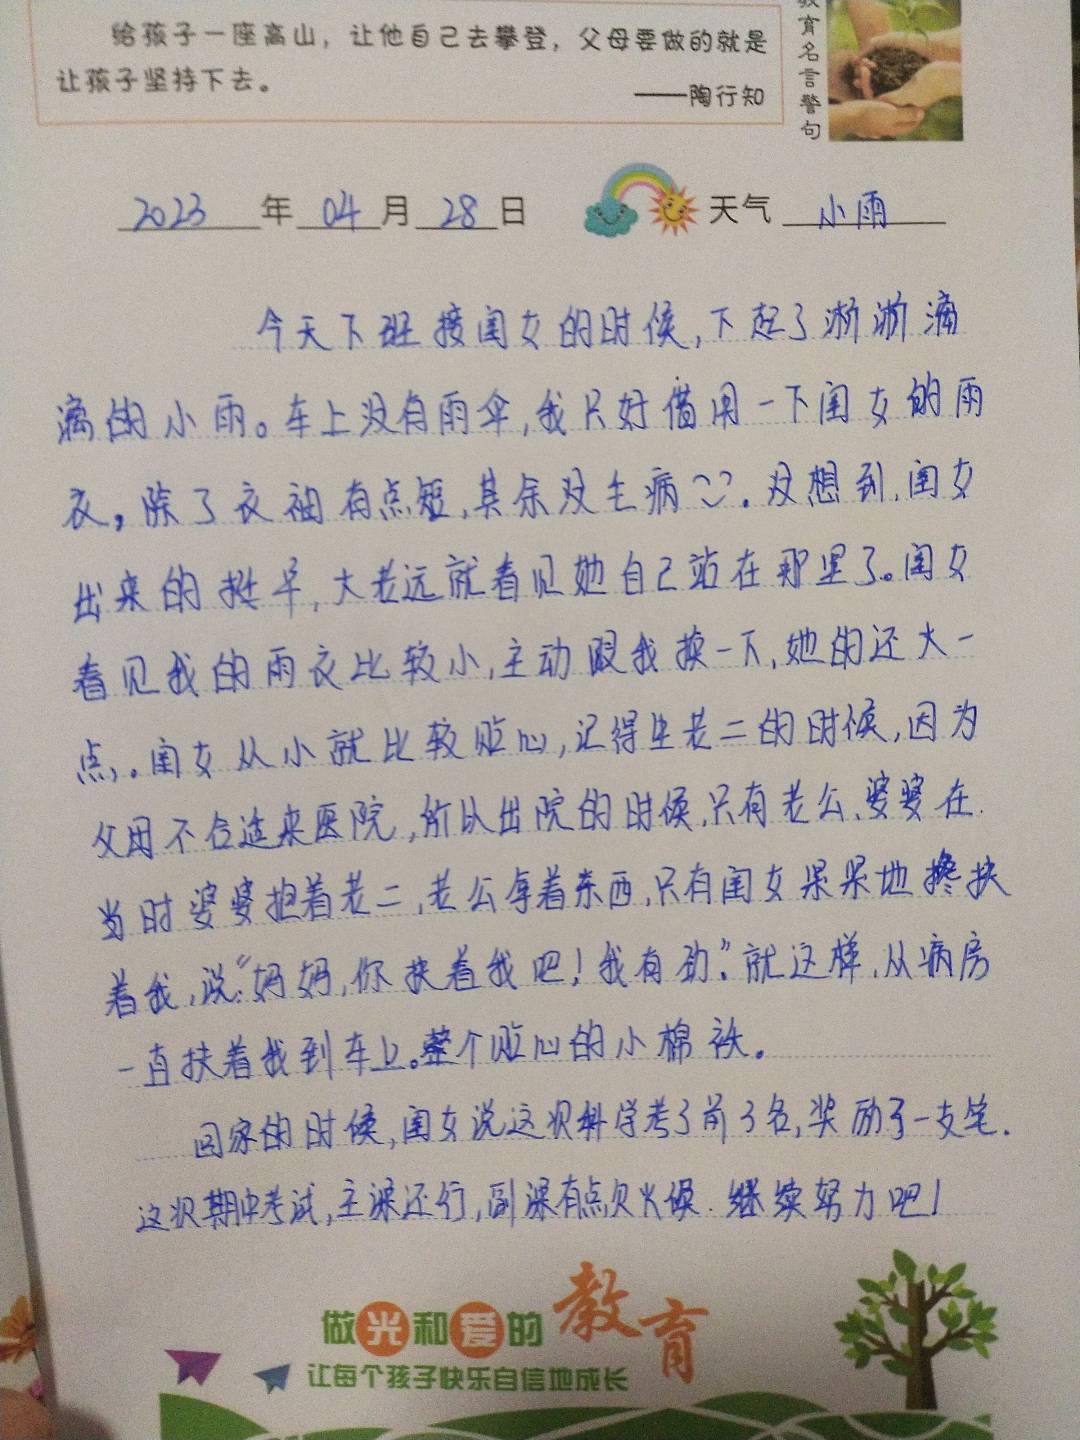 给孩子一座高山，让他自己去攀登，父母要做的就是
让孩子坚持下去。
——陶行知
教育名言警句
2023年04月28日 天气 小雨
今天下班接闺女的时候,下起了淅淅滴
滴的小雨。车上没有雨伞,我只好借用一下闺女的雨
衣。除了衣袖有点短,其余没毛病。没想到,闺女
出来的挺早,大老远就看见她自己站在那里了。闺女
看见我的雨衣比较小,主动跟我换一下,她的还大一
点。闺女从小就比较贴心,记得生老二的时候,因为
父母不合适来医院,所以出院的时候,只有老公、婆婆在.
当时婆婆抱着老二,老公拿着东西,只有闺女呆呆地搀扶
着我,说:“妈妈,你扶着我吧!我有劲”.就这样,从病房
一直扶着我到车上。整个贴心的小棉袄。
回家的时候,闺女说这次科学考了前3名,奖励了一支笔.
这次期中考试,主课还行,副课有点欠火候.继续努力吧!
做光和爱的教育
让每个孩子快乐自信地成长